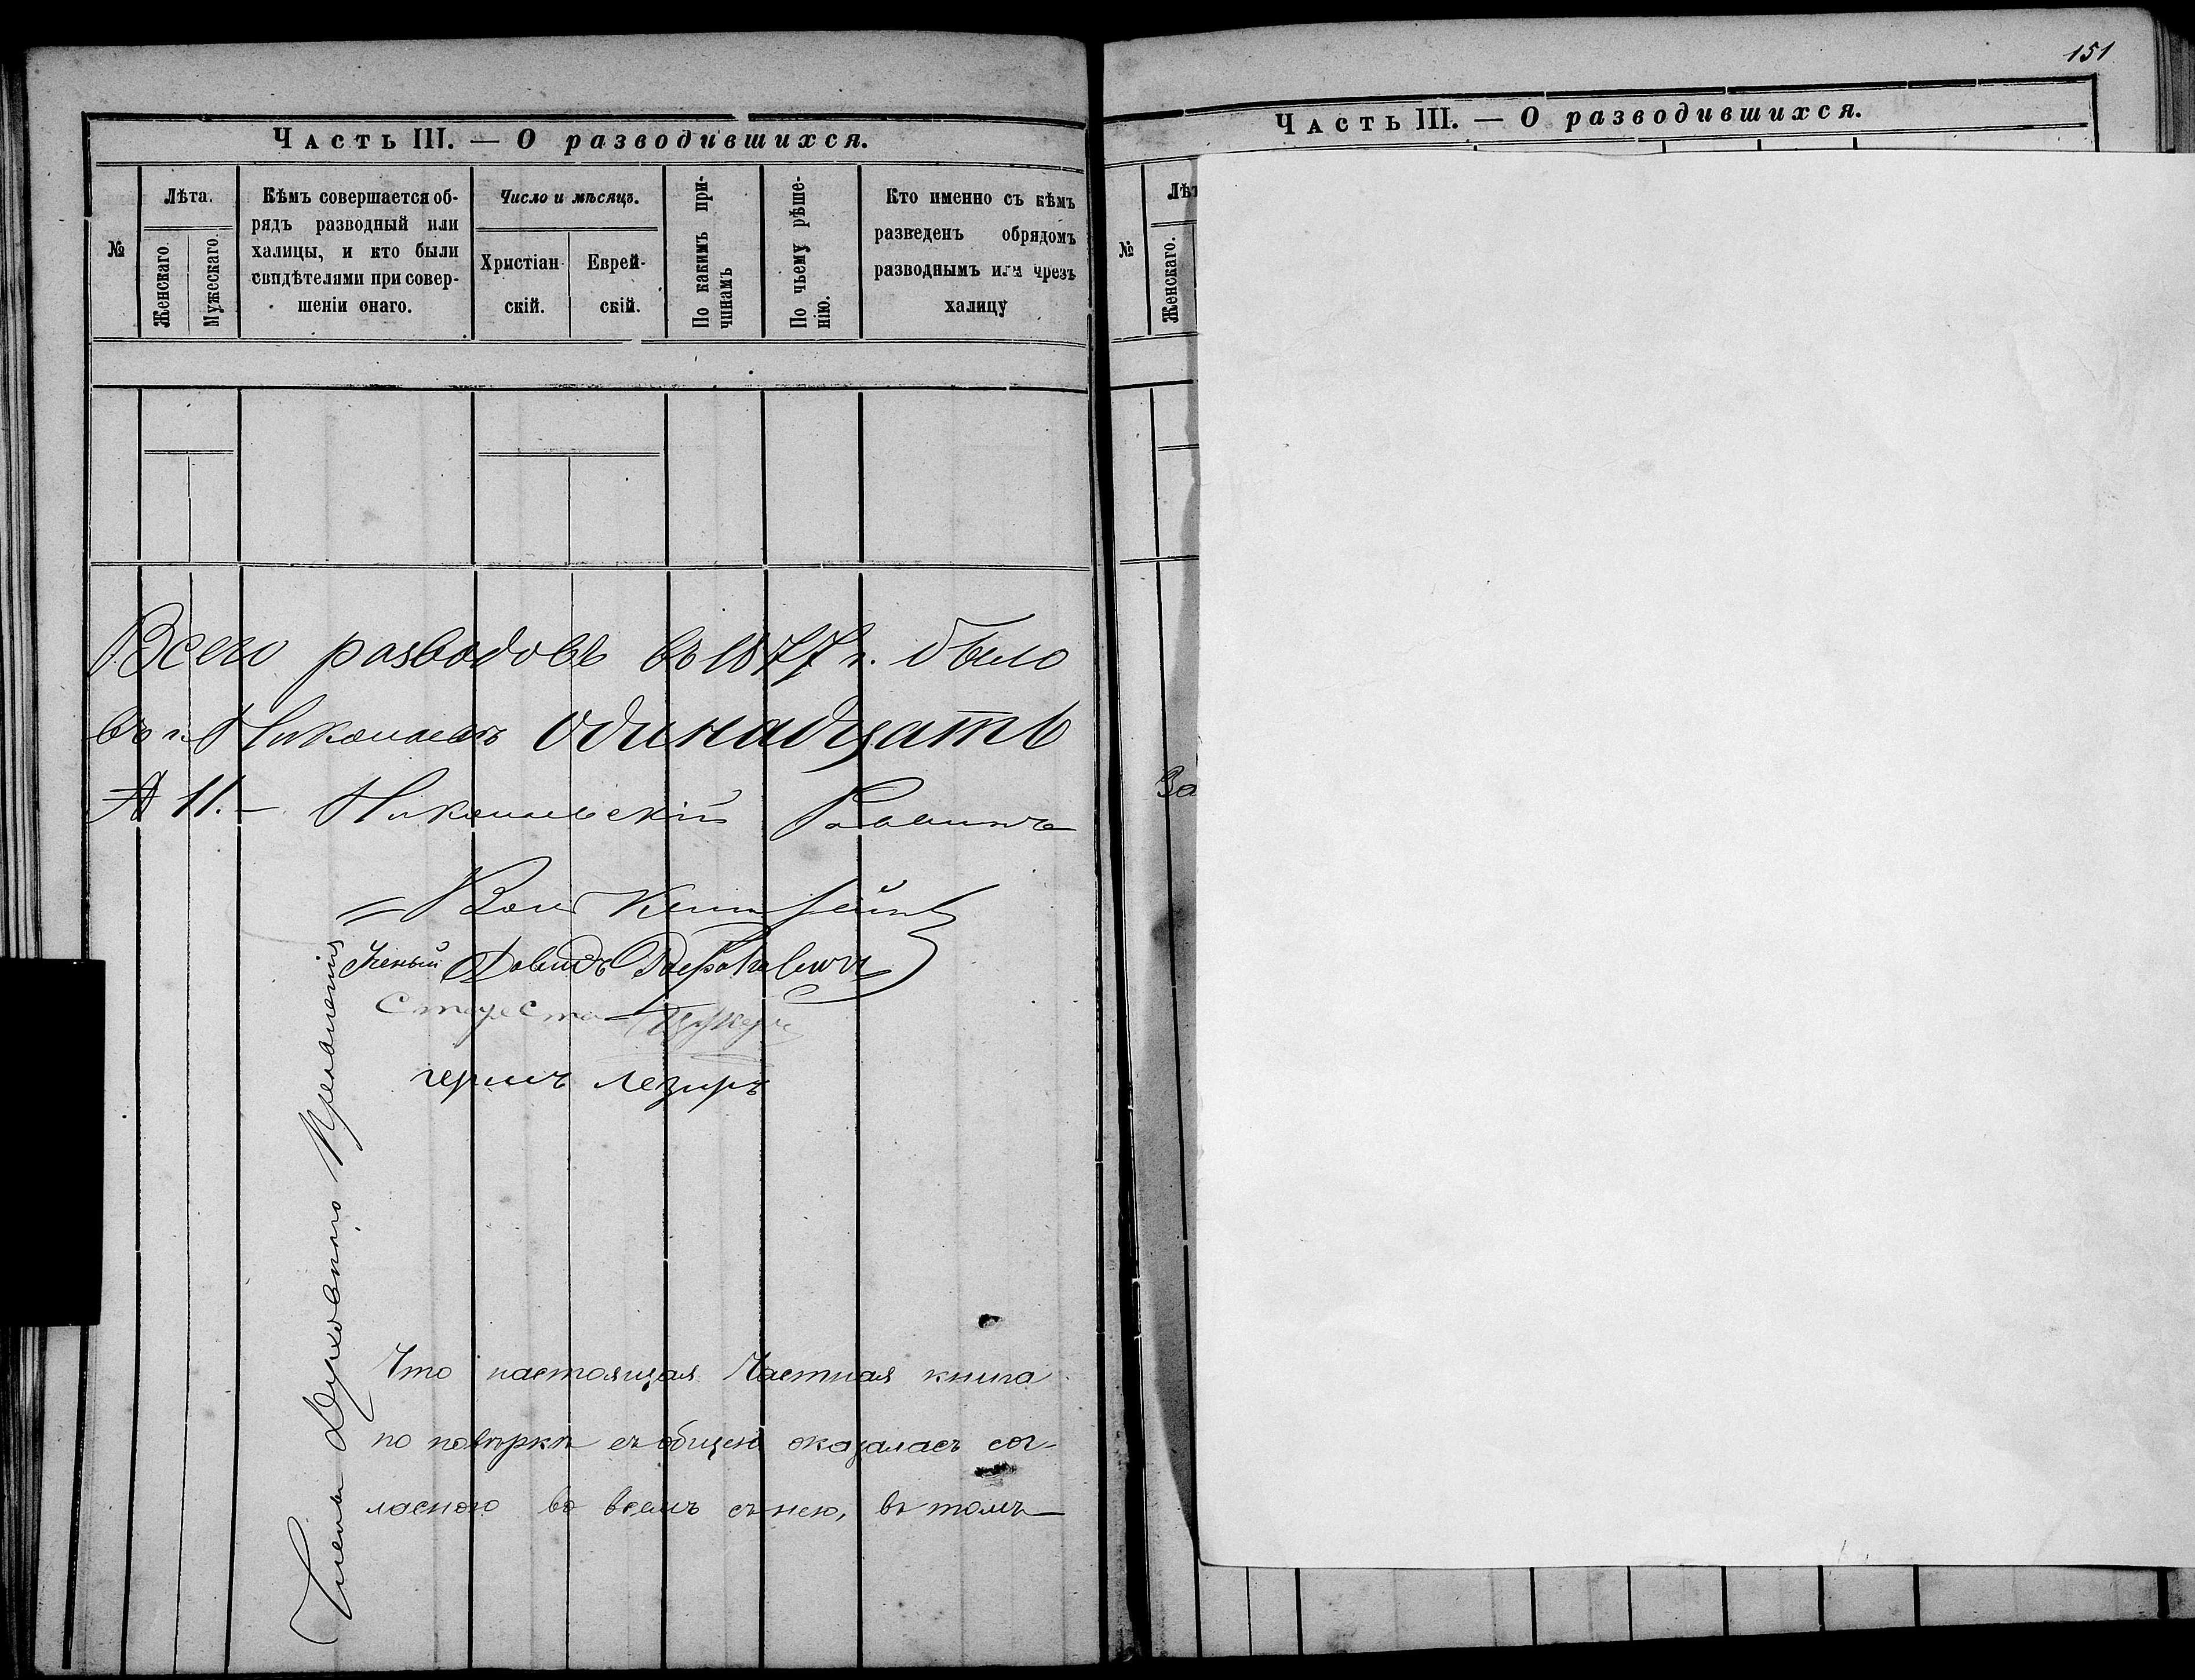 151
Часть III. — О разводившихся.
№
Лѣта.
Женскаго.
Мужескаго.
Кѣмъ совершается об-
рядъ разводный или
халицы, и кто были
свидѣтелями при совер-
шеніи онаго.
Число и мѣсяцъ.
Христіан-
скій.
Еврей-
скій.
По какимъ при-
чинамъ
По чьему рѣше-
нію.
Кто именно съ кѣмъ
разведенъ обрядомъ
разводнымъ или чрезъ
халицу
Всего разводовъ въ 1877 г. было
въ г. одинадцать
А 11. —
Раввинъ
Ученый Давидъ
Староста
Члены Духовнаго Правленія
Что настоящая Частная книга
по повѣркѣ съ общею оказалась сог-
ласною во всемъ съ нею, въ томъ
Часть III. — О разводившихся.
№
Лѣт
Женскаго.
За